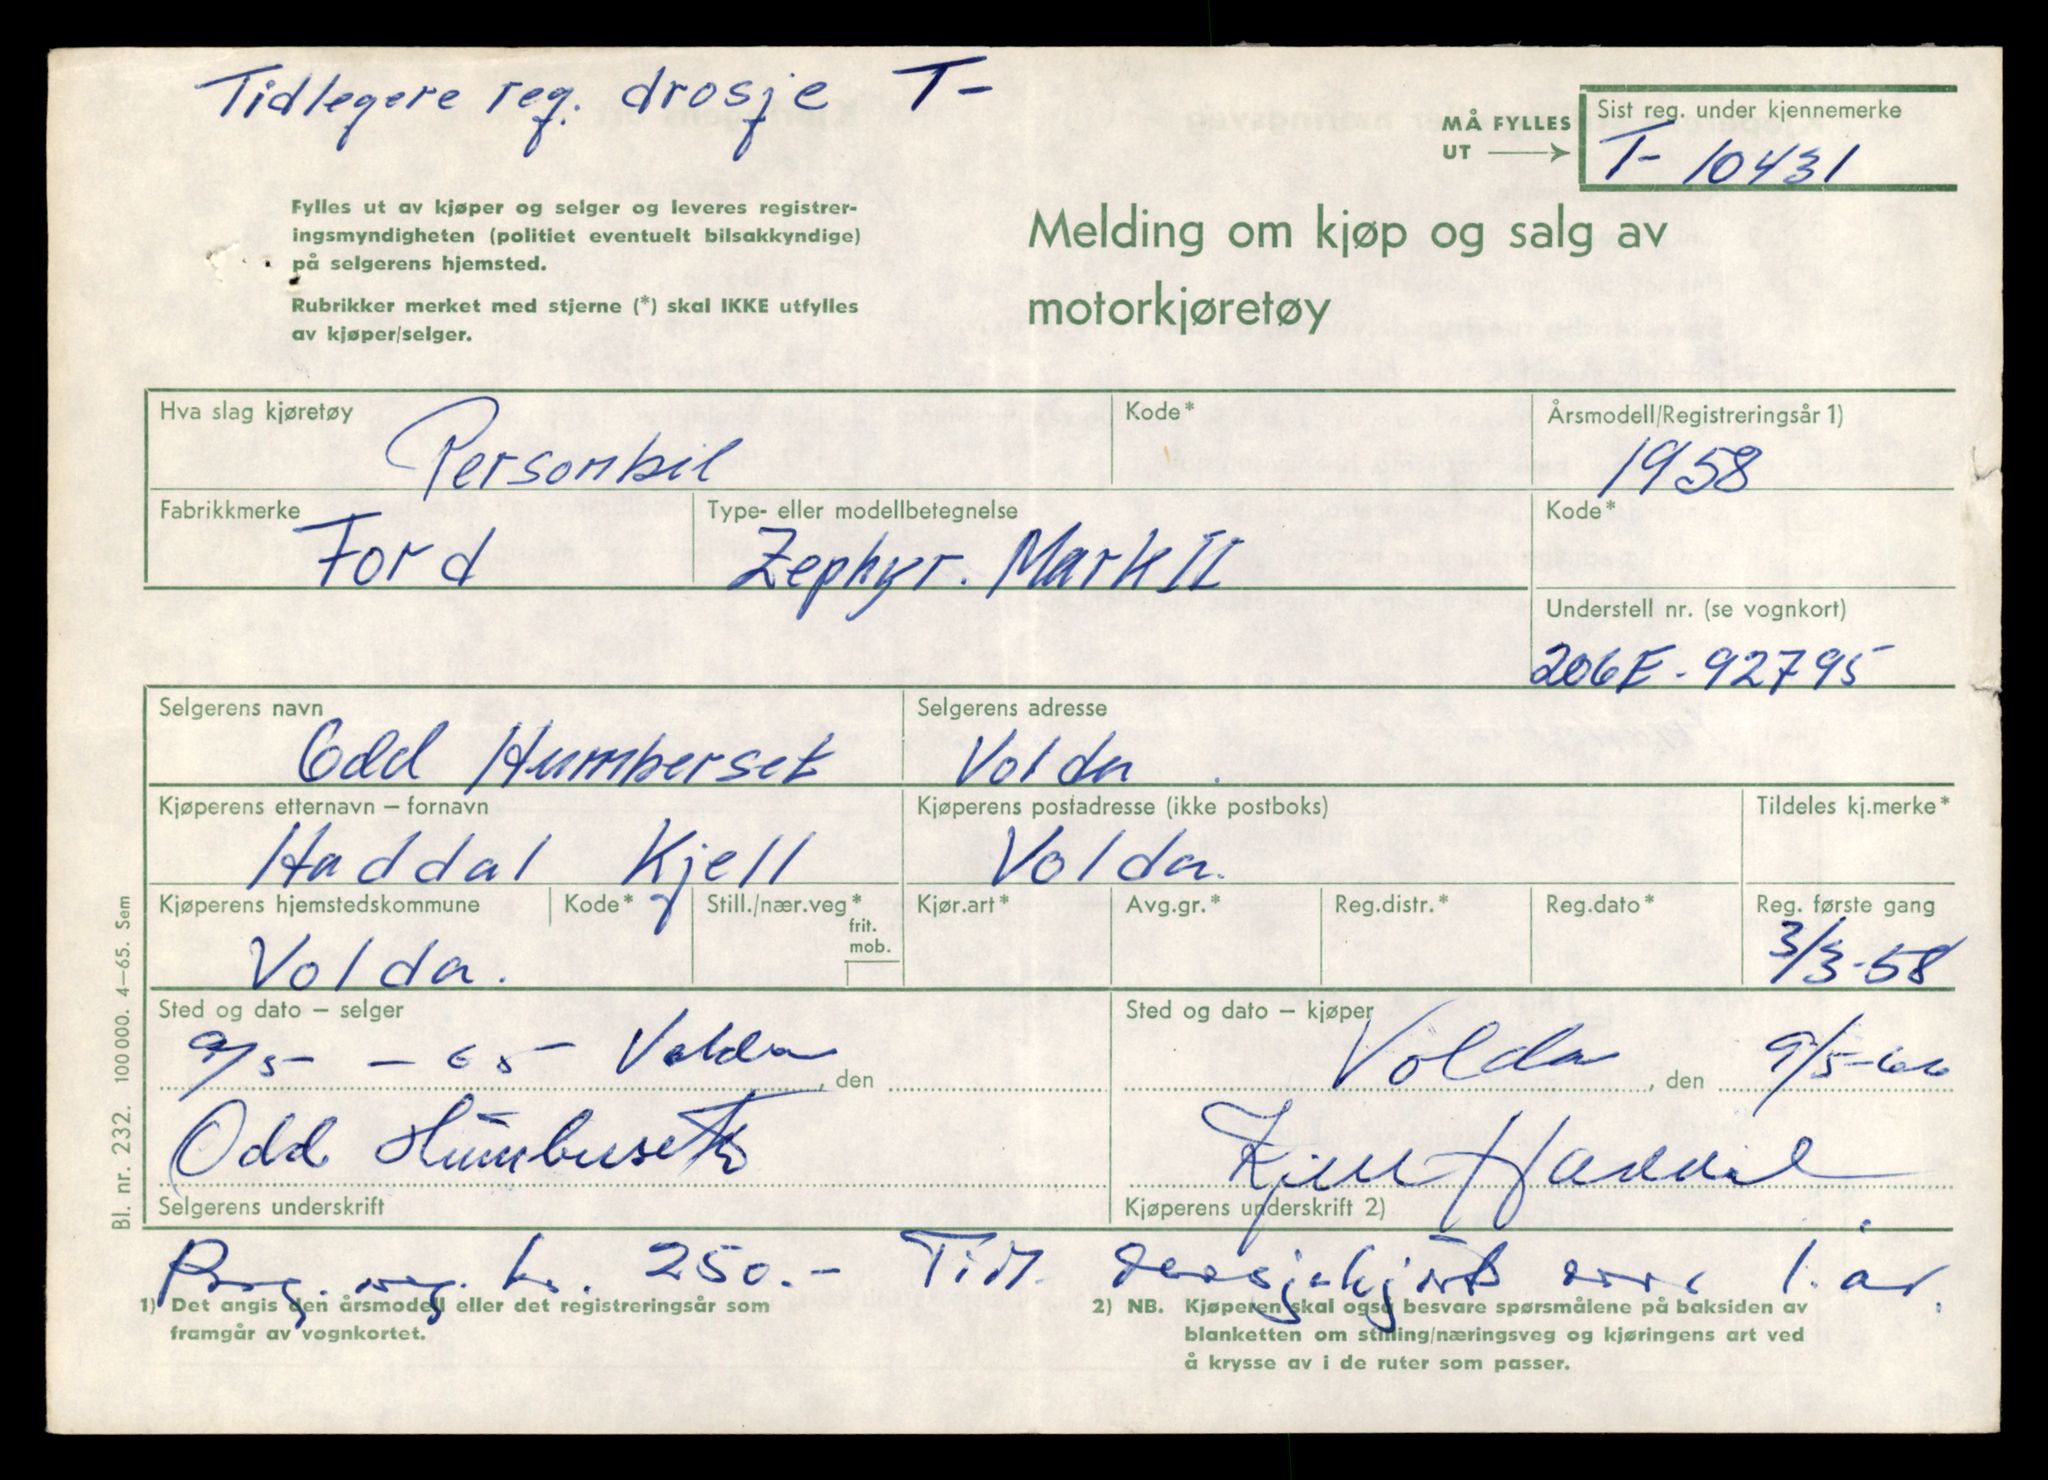 Tidlegere reg. drosje T-
MÅ FYLLES UT
Sist reg. under kjennemerke
T- 10431
Fylles ut av kjøper og selger og leveres registrer-
ingsmyndigheten (politiet eventuelt bilsakkyndige)
på selgerens hjemsted.
Rubrikker merket med stjerne (*) skal IKKE utfylles
av kjøper/selger.
Melding om kjøp og salg av
motorkjøretøy
Hva slag kjøretøy
Personbil
Kode*
Årsmodell/Registreringsår 1)
1958
Fabrikkmerke
Ford
Type- eller modellbetegnelse
Zephyr. Mark II
Kode*
Understell nr. (se vognkort)
206E-92795
Selgerens navn
Odd Humberset
Selgerens adresse
Volda
Kjøperens etternavn – fornavn
Haddal Kjell
Kjøperens postadresse (ikke postboks)
Volda.
Tildeles kj.merke*
Kjøperens hjemstedskommune
Volda.
Kode*
Still./nær.veg*
frit.
mob.
Kjør.art*
Avg.gr.*
Reg.distr.*
Reg.dato*
Reg. første gang
3/3-58
Sted og dato – selger
9/5 - 65 Volda , den
Odd Humberset
Selgerens underskrift
Sted og dato – kjøper
Volda , den 9/5-66
Kjell Haddal
Kjøperens underskrift 2)
kr. 250.- Tidl. drosjekjørt over 1. år.
1) Det angis den årsmodell eller det registreringsår som
framgår av vognkortet.
2) NB. Kjøperen skal også besvare spørsmålene på baksiden av
blanketten om stilling/næringsveg og kjøringens art ved
å krysse av i de ruter som passer.
Bl. nr. 232. 100 000. 4–65. Sem